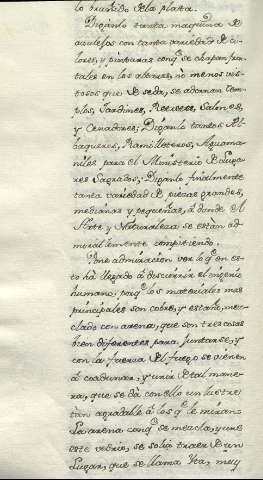 lo bruñido de la plata.
Diganlo tanta maquina de
azulejos con tanta variedad de co-
lores, y pinturas conq.e se chapan fron-
tales en los altares, no menos vis-
tosos que de seda, se adornan tem-
plos, Jardines, Recreos, Salones,
y Cenadores; Diganlo tantos Al-
baqueros, Ramilleteros, Aguama-
niles para el Ministerio de Lugares
Sagrados; Diganlo finalmente
tanta variedad de piezas grandes,
medianas y pequeñas, à donde el
Arte, y Naturaleza se estan ad-
mirablemente compitiendo.
Pone admiracion ver lo q.e en es-
to hà llegado à discurrir el ingenio
humano, porq.e los materiales mas
principales son cobre, y estaño, mez-
clado con arena, que son tres cosas
bien diferentes para juntarse, y
con la fuerza del fuego se vienen
à coadunar, y unir de tal mane-
ra, que se dà con ello un lustre
tan agradable à los q.e le miran.
La arena conq.e se mezcla, y une
este vedrio, se solia traer de un
Lugar, que se llama Yta, muy